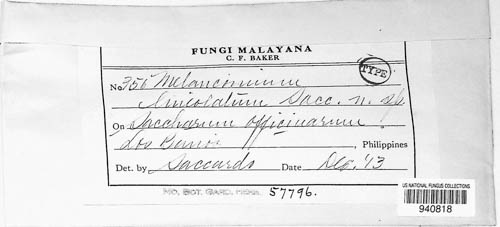 FUNGI MALAYANA
C. F. BAKER
TYPE
No. 356 Melanconium
lineolatum Sacc. n. sp.
On Saccharum officinarum
Los Banos , Philippines
Det. by Saccardo Date Dec. '13
MO. BOT. GARD. HERB. 57796.
US NATIONAL FUNGUS COLLECTIONS
940818